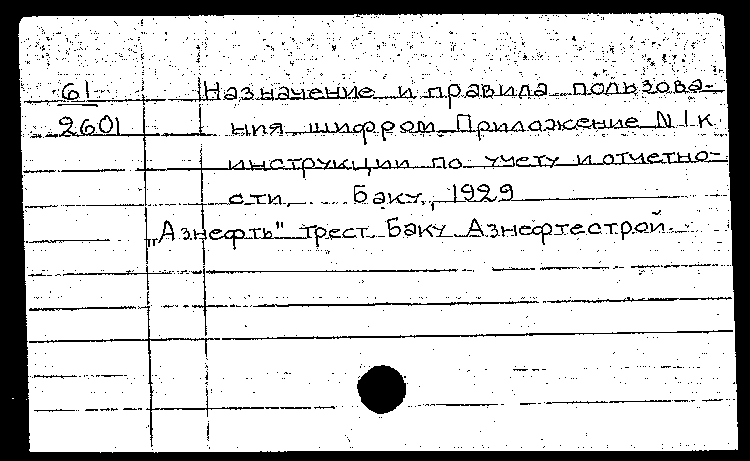 61
2601
Назначение и правила пользова-
ния шифром. Приложение N 1 к
инструкции по учету и отчетно-
сти. Баку, 1929
„Азнефть" трест. Баку Азнефтестрой.